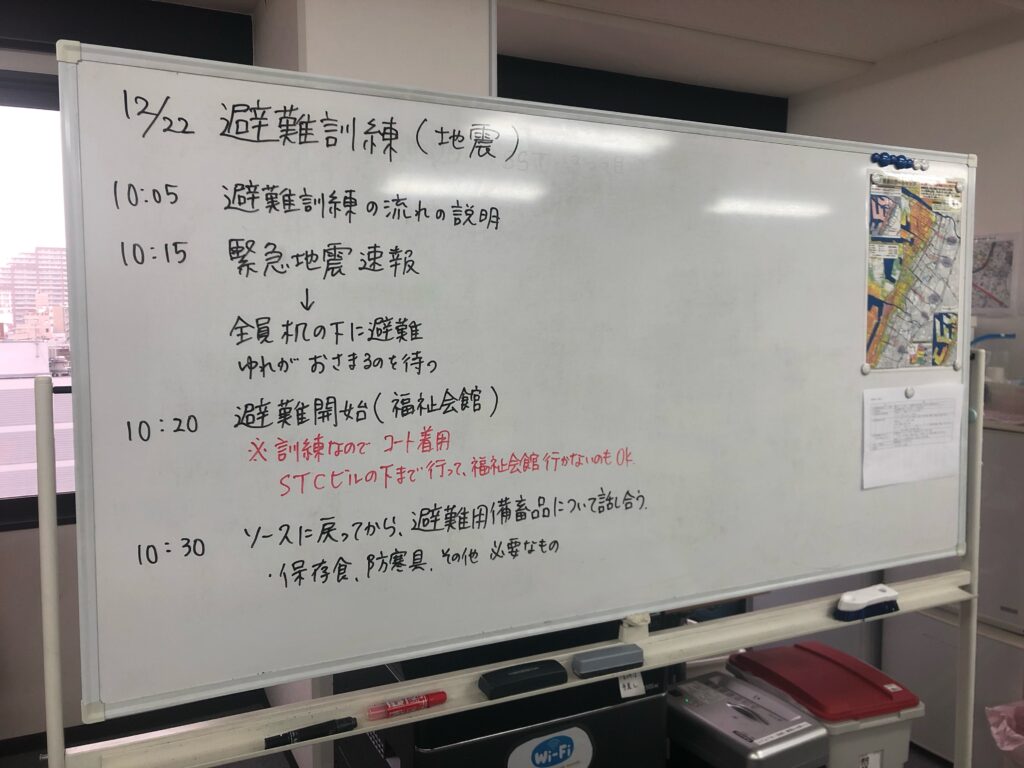 12/22 避難訓練(地震)
10:05 避難訓練の流れの説明
10:15 緊急地震速報
↓
全員机の下に避難
ゆれがおさまるのを待つ
10:20 避難開始(福祉会館)
※訓練なので コート着用
STCビルの下まで行って、福祉会館行かないのもOK.
10:30 ソースに戻ってから、避難用備畜品について話し合う.
・保存食、防寒具、その他 必要なもの
Wi-Fi